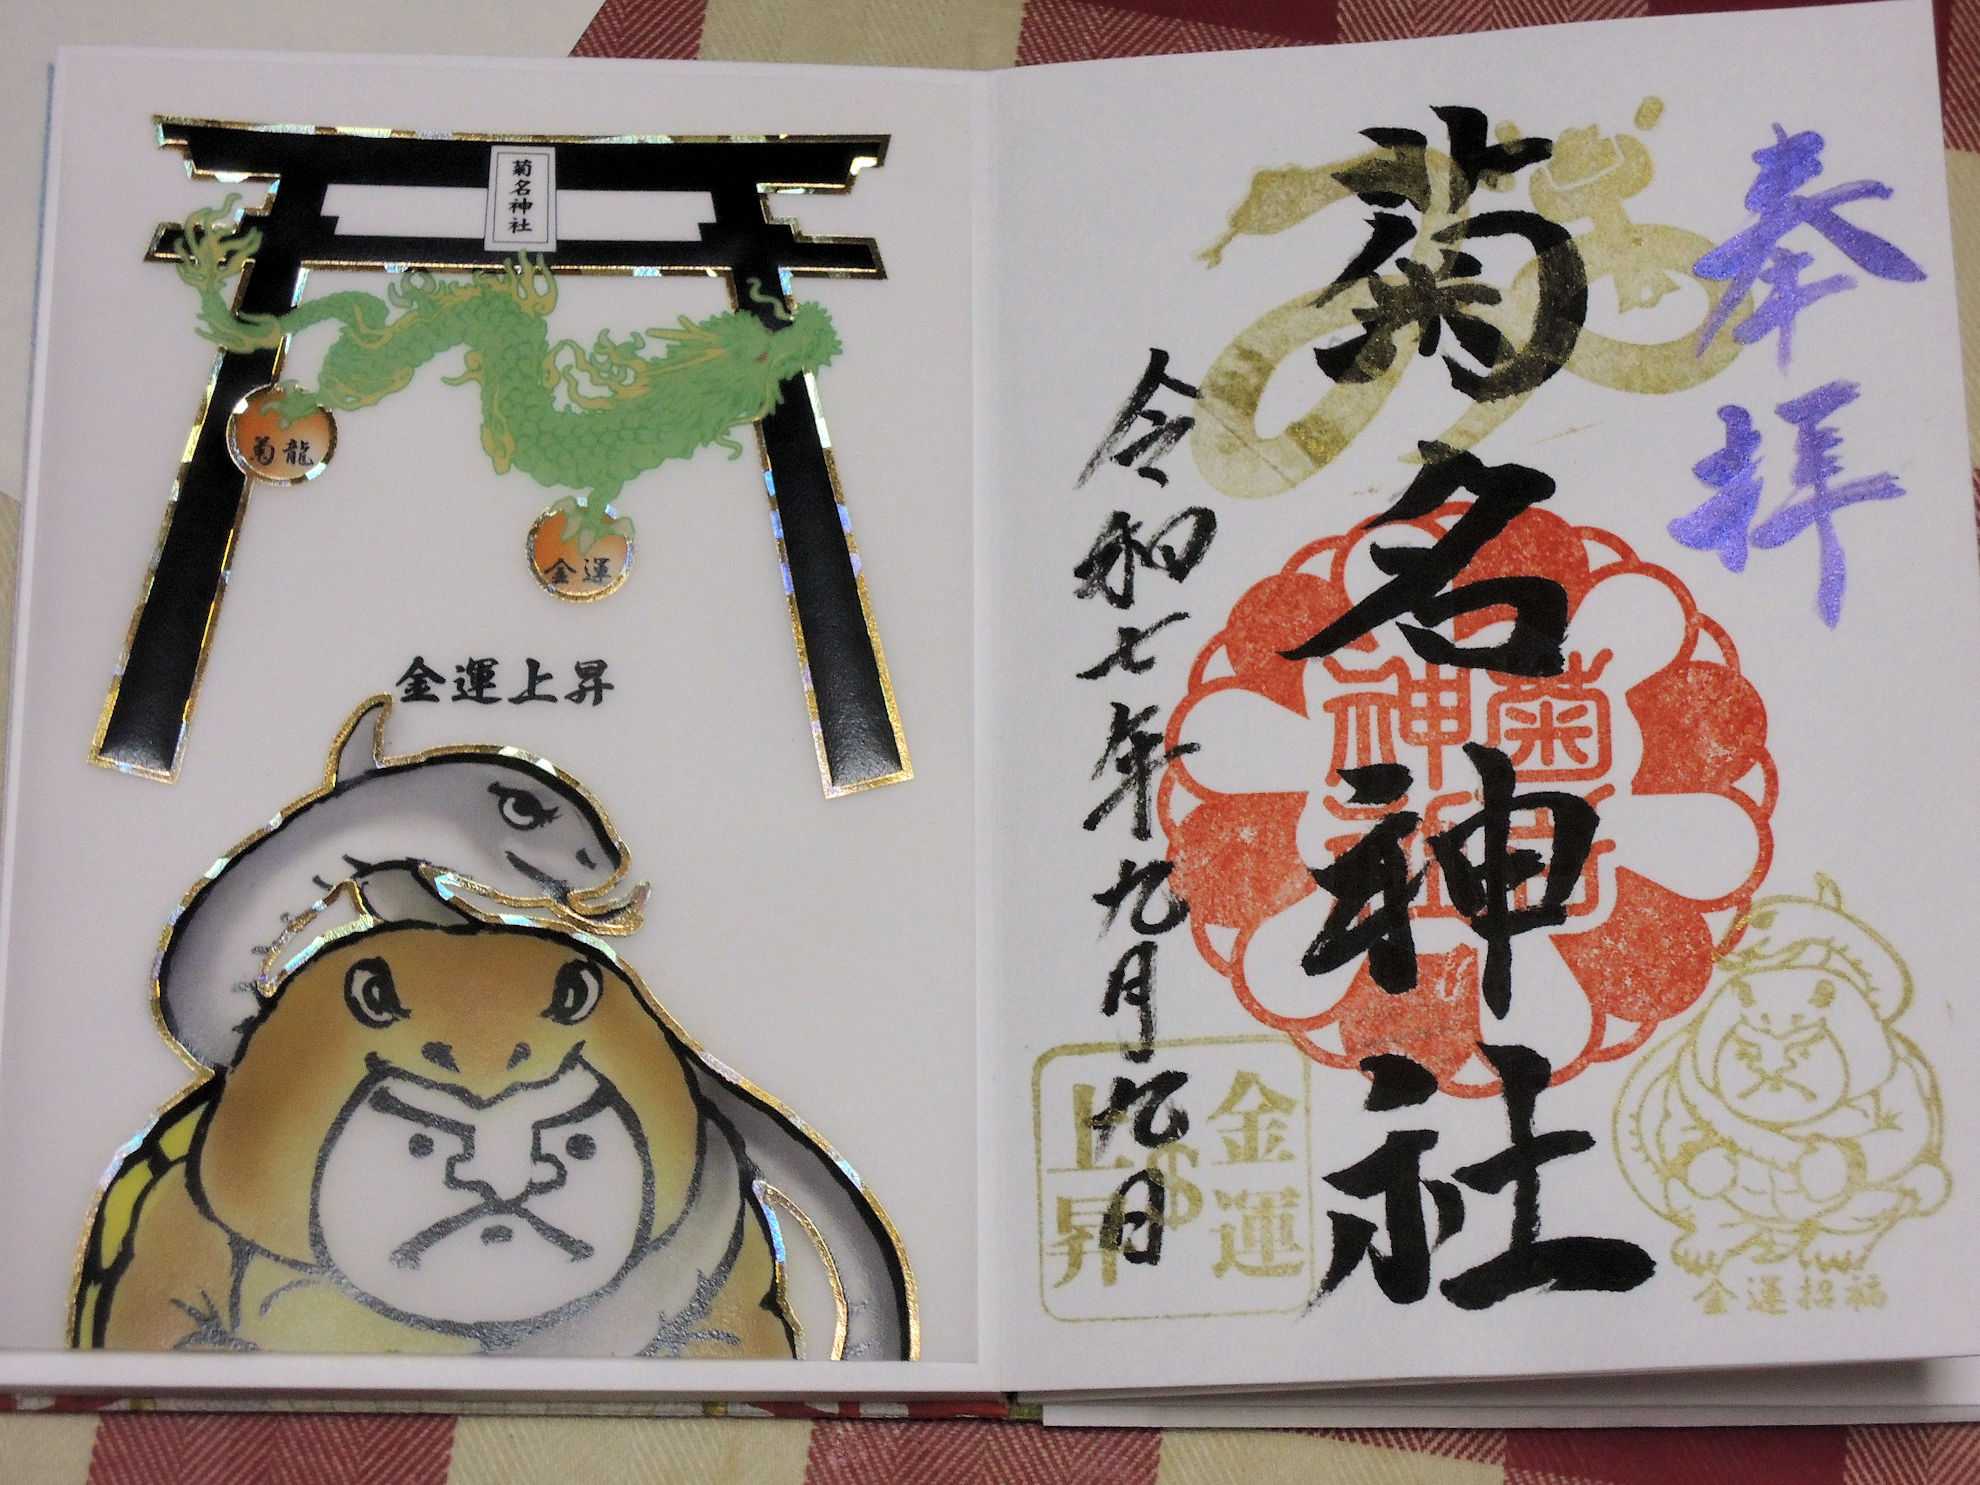 菊名神社
菊龍
金運
金運上昇
奉拝
菊名神社
令和七年九月九日
菊
神
金運
上昇
$
金運招福